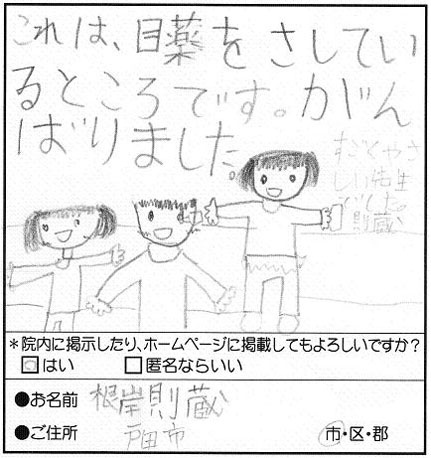 これは、目薬をさしてい
るところです。がん
ばりました。
すごくやさ
しい先生
でした。
則蔵
*院内に掲示したり、ホームページに掲載してもよろしいですか?
はい 匿名ならいい
●お名前 根岸則蔵
●ご住所 戸田市 市・区・郡